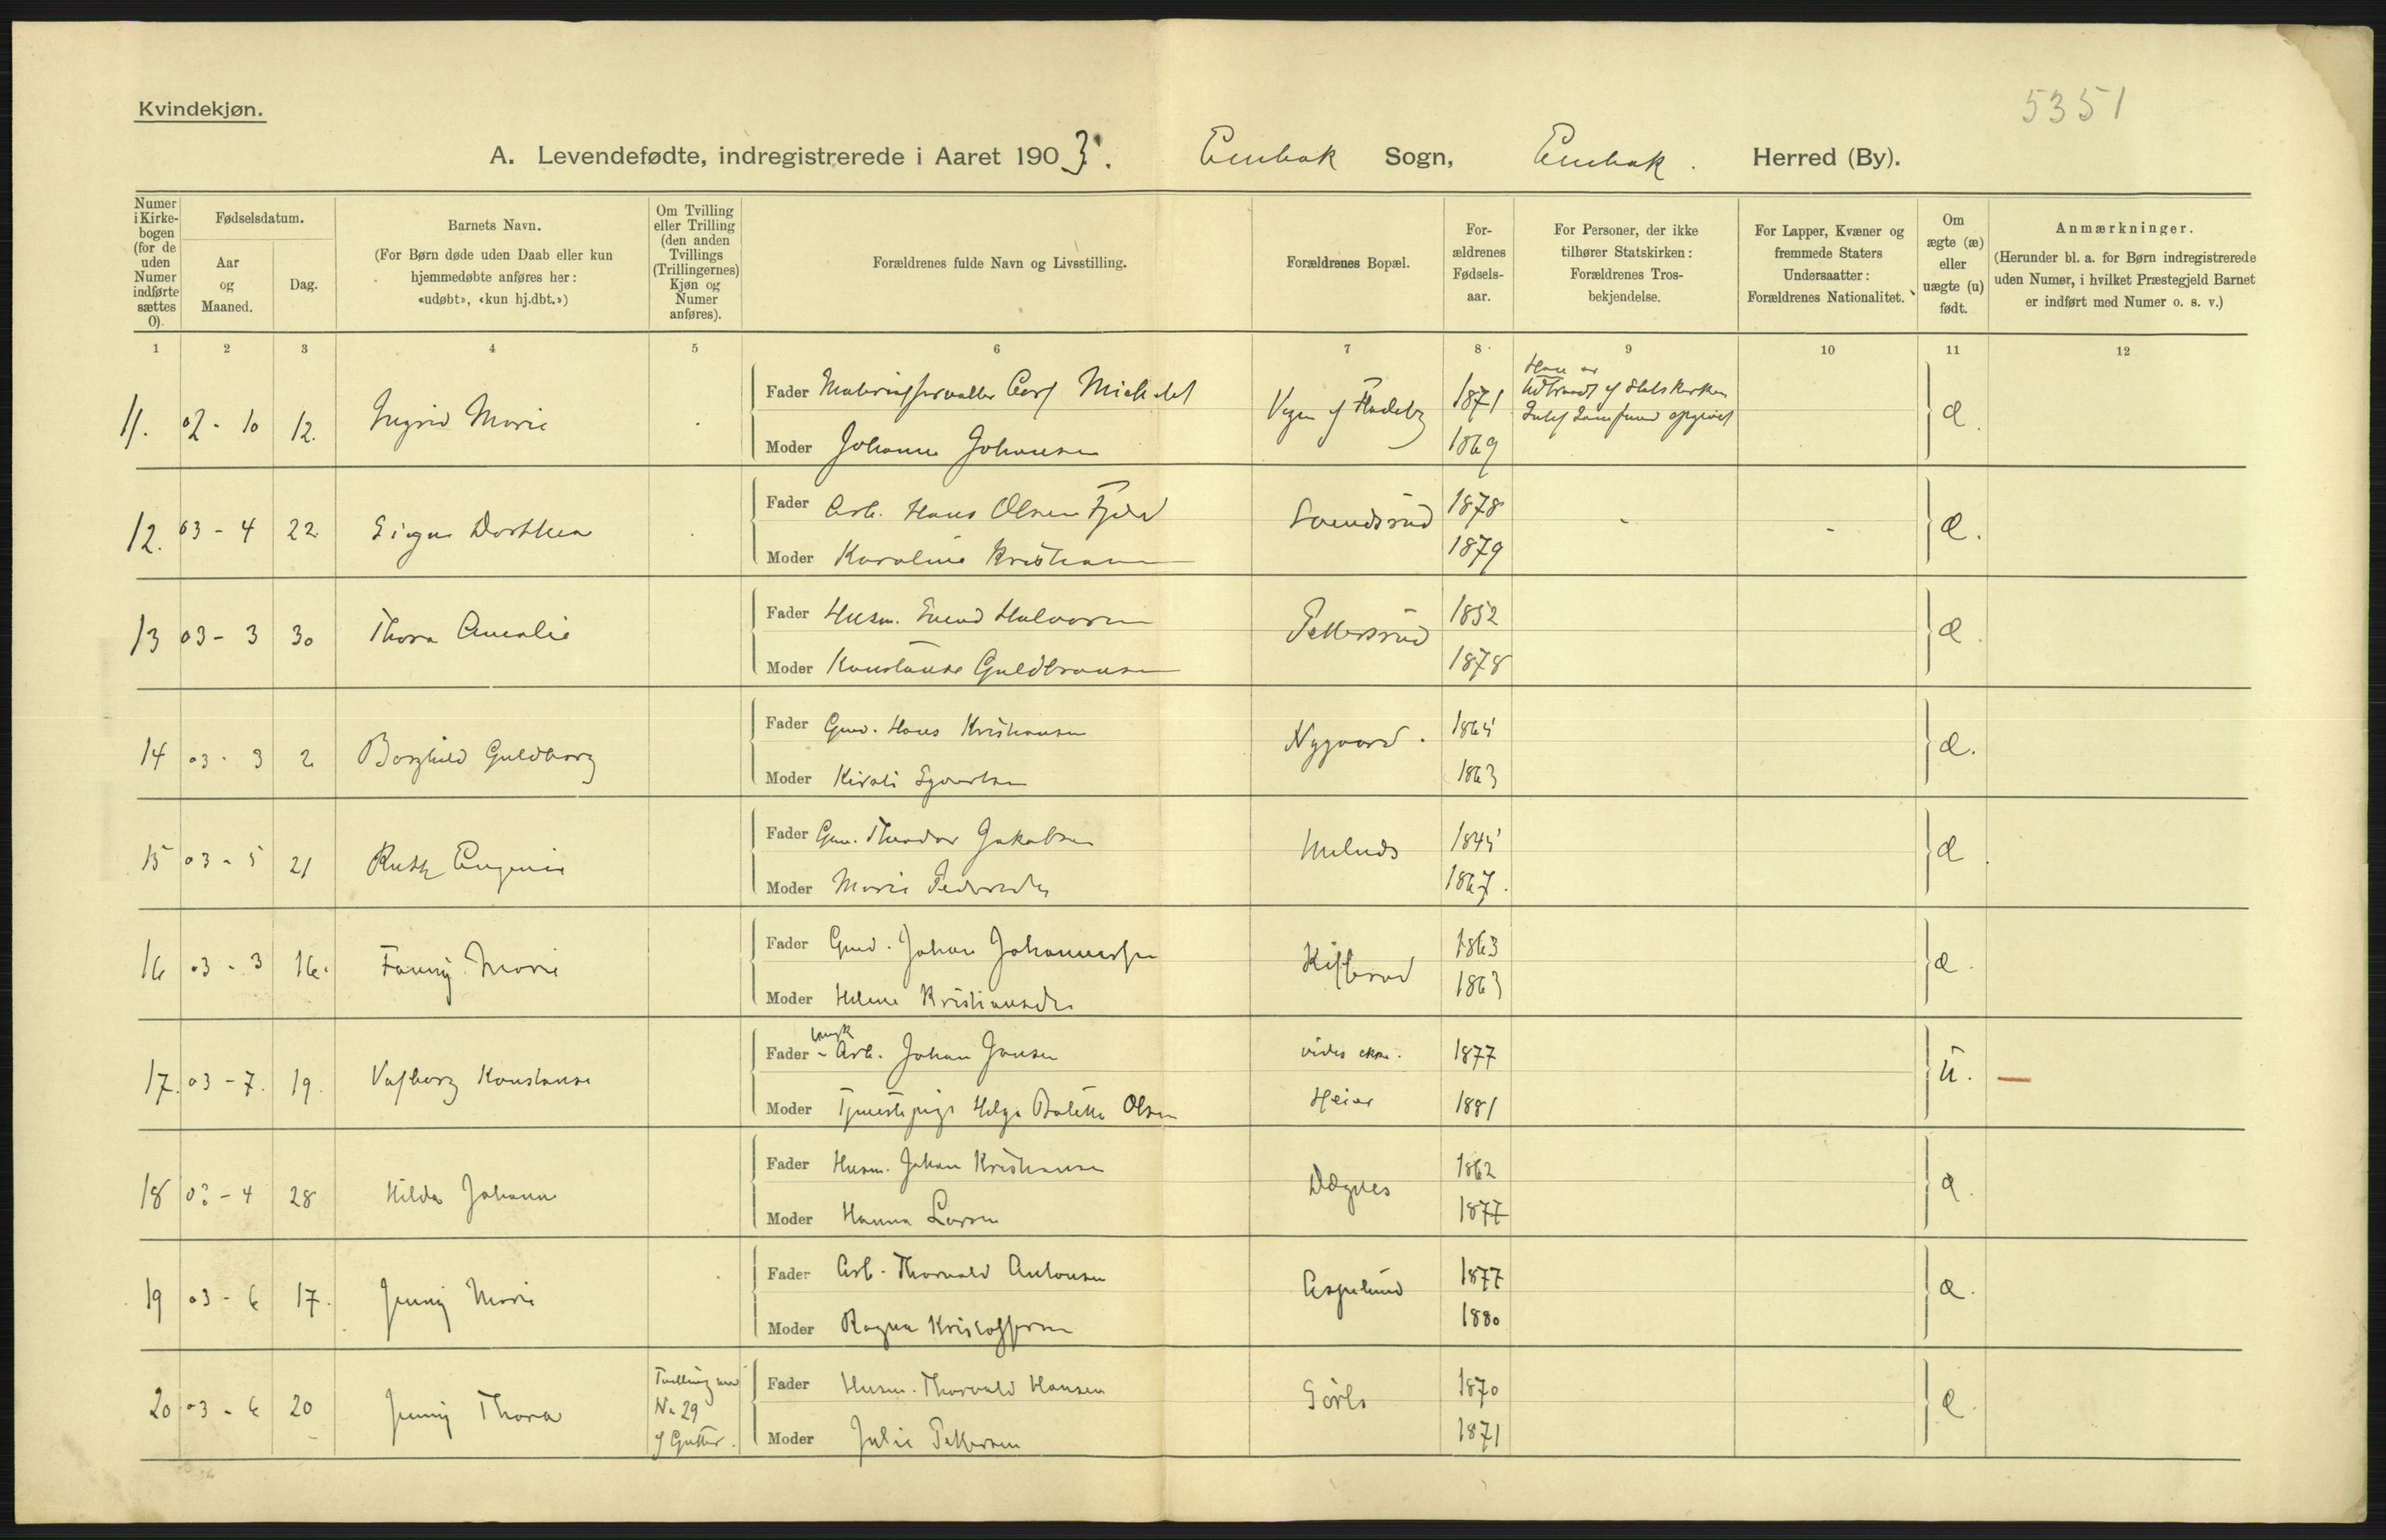 Kvindekjøn.
5351
A. Levendefødte, indregistrerede i Aaret 1903. Enebak Sogn, Enebak. Herred (By).
Numer i Kirke-bogen (for de uden Numer indførte sættes 0).
Fødselsdatum.
Aar og Maaned.
Dag.
Barnets Navn.
(For Børn døde uden Daab eller kun
hjemmedøbte anføres her:
«udøbt», «kun hj.dbt.»)
Om Tvilling
eller Trilling
(den anden
Tvillings
(Trillingernes)
Kjøn og
Numer
anføres).
Forældrenes fulde Navn og Livsstilling.
Forældrenes Bopæl.
For-
ældrenes
Fødsels-
aar.
For Personer, der ikke
tilhører Statskirken:
Forældrenes Tros-
bekjendelse.
For Lapper, Kvæner og
fremmede Staters
Undersaatter:
Forældrenes Nationalitet.
Om
ægte (æ)
eller
uægte (u)
født.
Anmærkninger.
(Herunder bl. a. for Børn indregistrerede
uden Numer, i hvilket Præstegjeld Barnet
er indført med Numer o. s. v.)
1 2 3 4 5 6 7 8 9 10 11 12
11. 02 - 10 12. Ingrid Marie
Fader Materialforvalter Carl Michelet 1871
Moder Johanne Johansen 1869
Han er
Udtraadt af Statskirken
æ.
12. 03 - 4 22 Signe Dorthea
Fader Arb. Hans Olsen Fjeld Svendsrud 1878
Moder Karoline Kristiansen 1879
æ.
13 03 - 3 30 Thora Amalie
Fader Husm. Svend Halvorsen Pettersrud 1852
Moder Konstanse Guldbransen 1878
æ.
14 03 - 3 2 Borghild Guldborg
Fader Grd. Hans Kristiansen Nygaard. 1865
Moder Kirsti Syvertsen 1863
æ.
15 03 - 5 21 Ruth Eugenie
Fader Theodor Jakobsen 1845
Moder Marie Pedersdtr 1867.
æ.
16 03 - 3 16. Fanny Marie
Fader Grd. Johan Johannessen 1863
Moder Helene Kristiansdtr 1863
æ.
17. 03 - 7. 19. Valborg Konstanse
Fader Arb. Johan Jansen vides ikke. 1877
Moder Tjenestepige Helga Bolette Olsen Heier 1881
u.
18 03 - 4 28 Hilda Johanne
Fader Husm. Johan Kristiansen Dægnes 1862
Moder Hanna Larsen 1877
æ.
19 03 - 6 17. Jenny Marie
Fader Arb. Thorvald Antonsen Aspelund 1877
Moder Ragna Kristoffersen 1880
æ.
20 03 - 6 20 Jenny Thora
Tvilling med
No 29
af Gutter.
Fader Husm. Thorvald Hansen 1870
Moder Julie Pettersen 1871
æ.